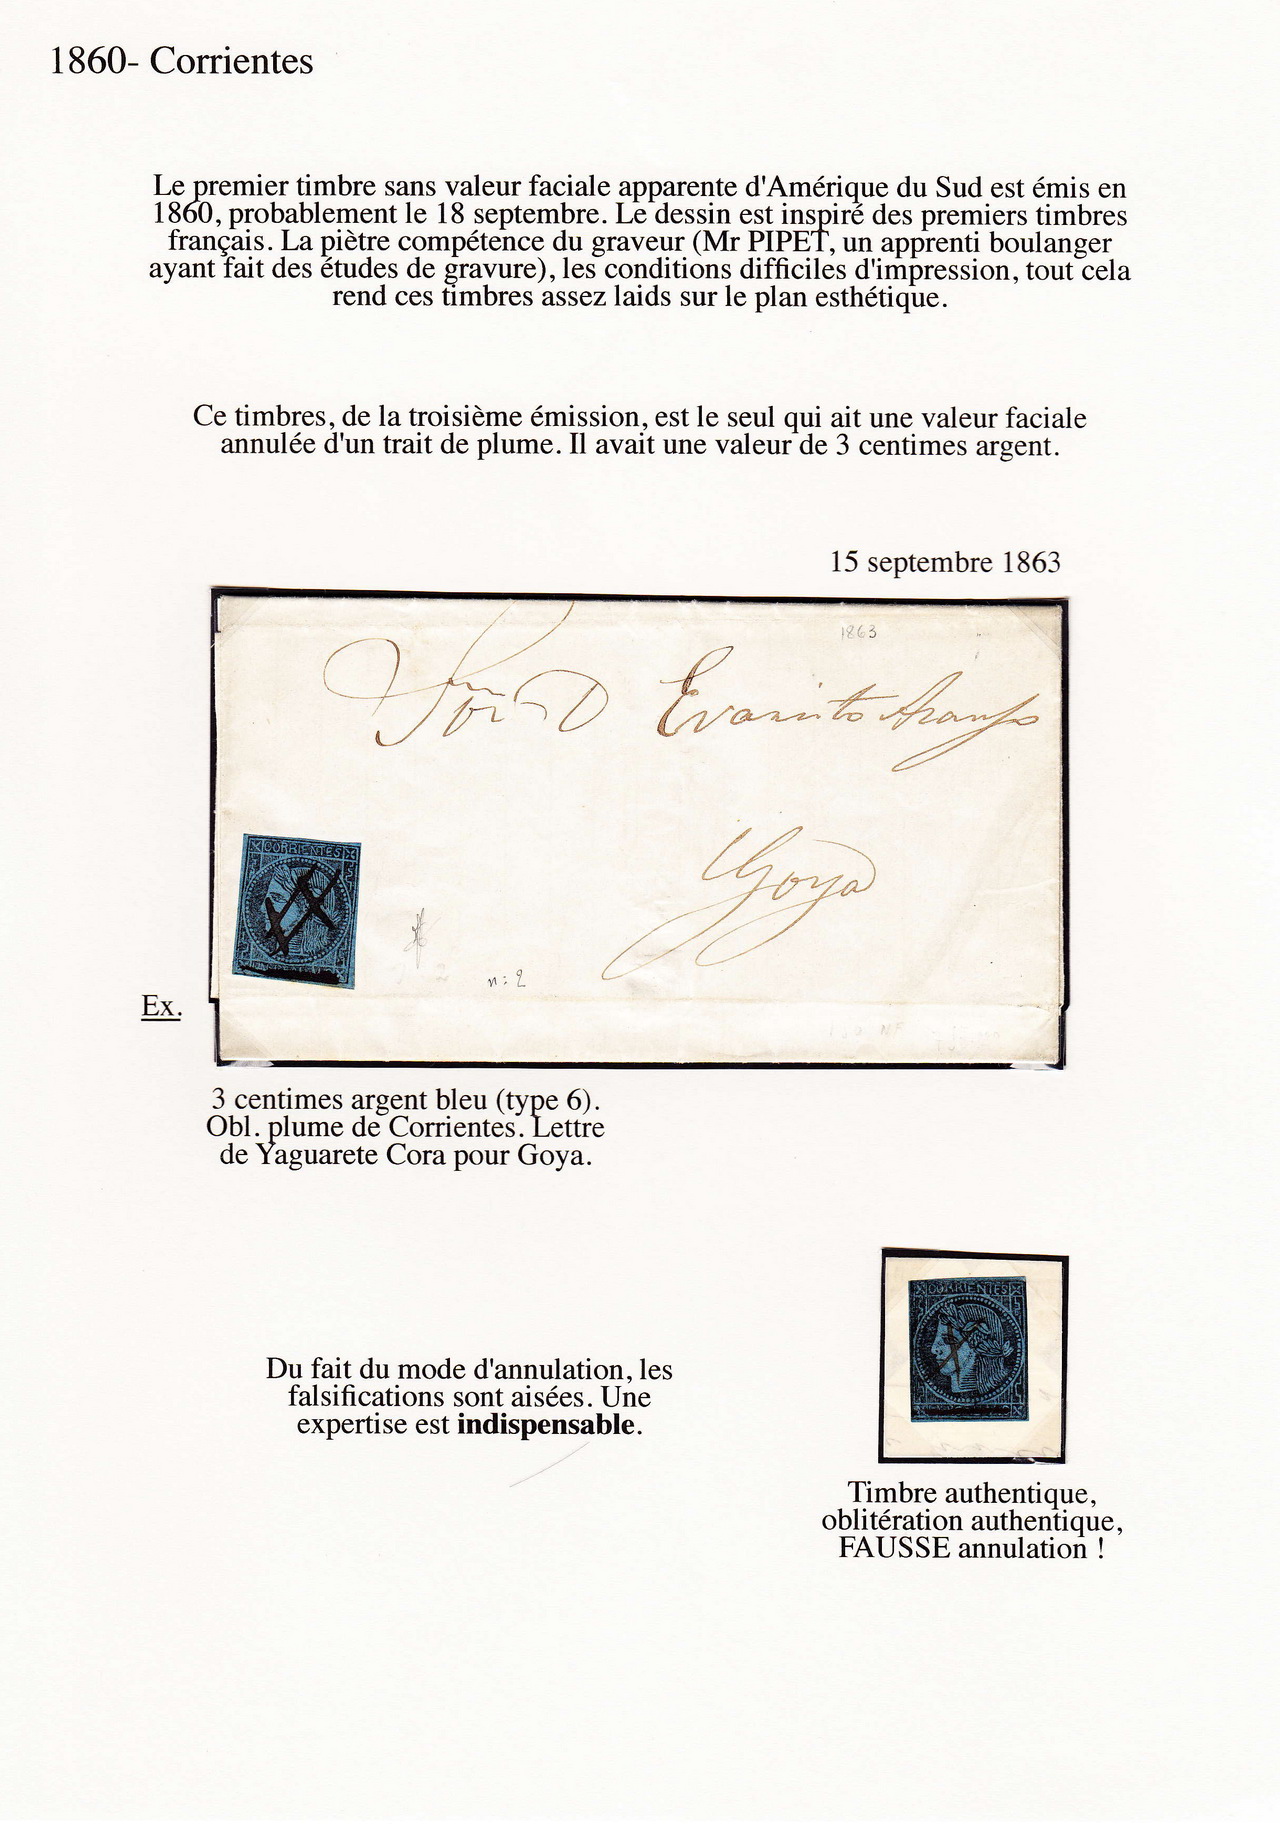 1860- Corrientes
Le premier timbre sans valeur faciale apparente d'Amérique du Sud est émis en
1860, probablement le 18 septembre. Le dessin est inspiré des premiers timbres
français. La piètre compétence du graveur (Mr PIPET, un apprenti boulanger
ayant fait des études de gravure), les conditions difficiles d'impression, tout cela
rend ces timbres assez laids sur le plan esthétique.
Ce timbres, de la troisième émission, est le seul qui ait une valeur faciale
annulée d'un trait de plume. Il avait une valeur de 3 centimes argent.
15 septembre 1863
1863
Sor D Evaristo Araujo
Goya
CORRIENTES
n: 2
Ex.
3 centimes argent bleu (type 6).
Obl. plume de Corrientes. Lettre
de Yaguarete Cora pour Goya.
CORRIENTES
Du fait du mode d'annulation, les
falsifications sont aisées. Une
expertise est indispensable.
Timbre authentique,
oblitération authentique,
FAUSSE annulation !